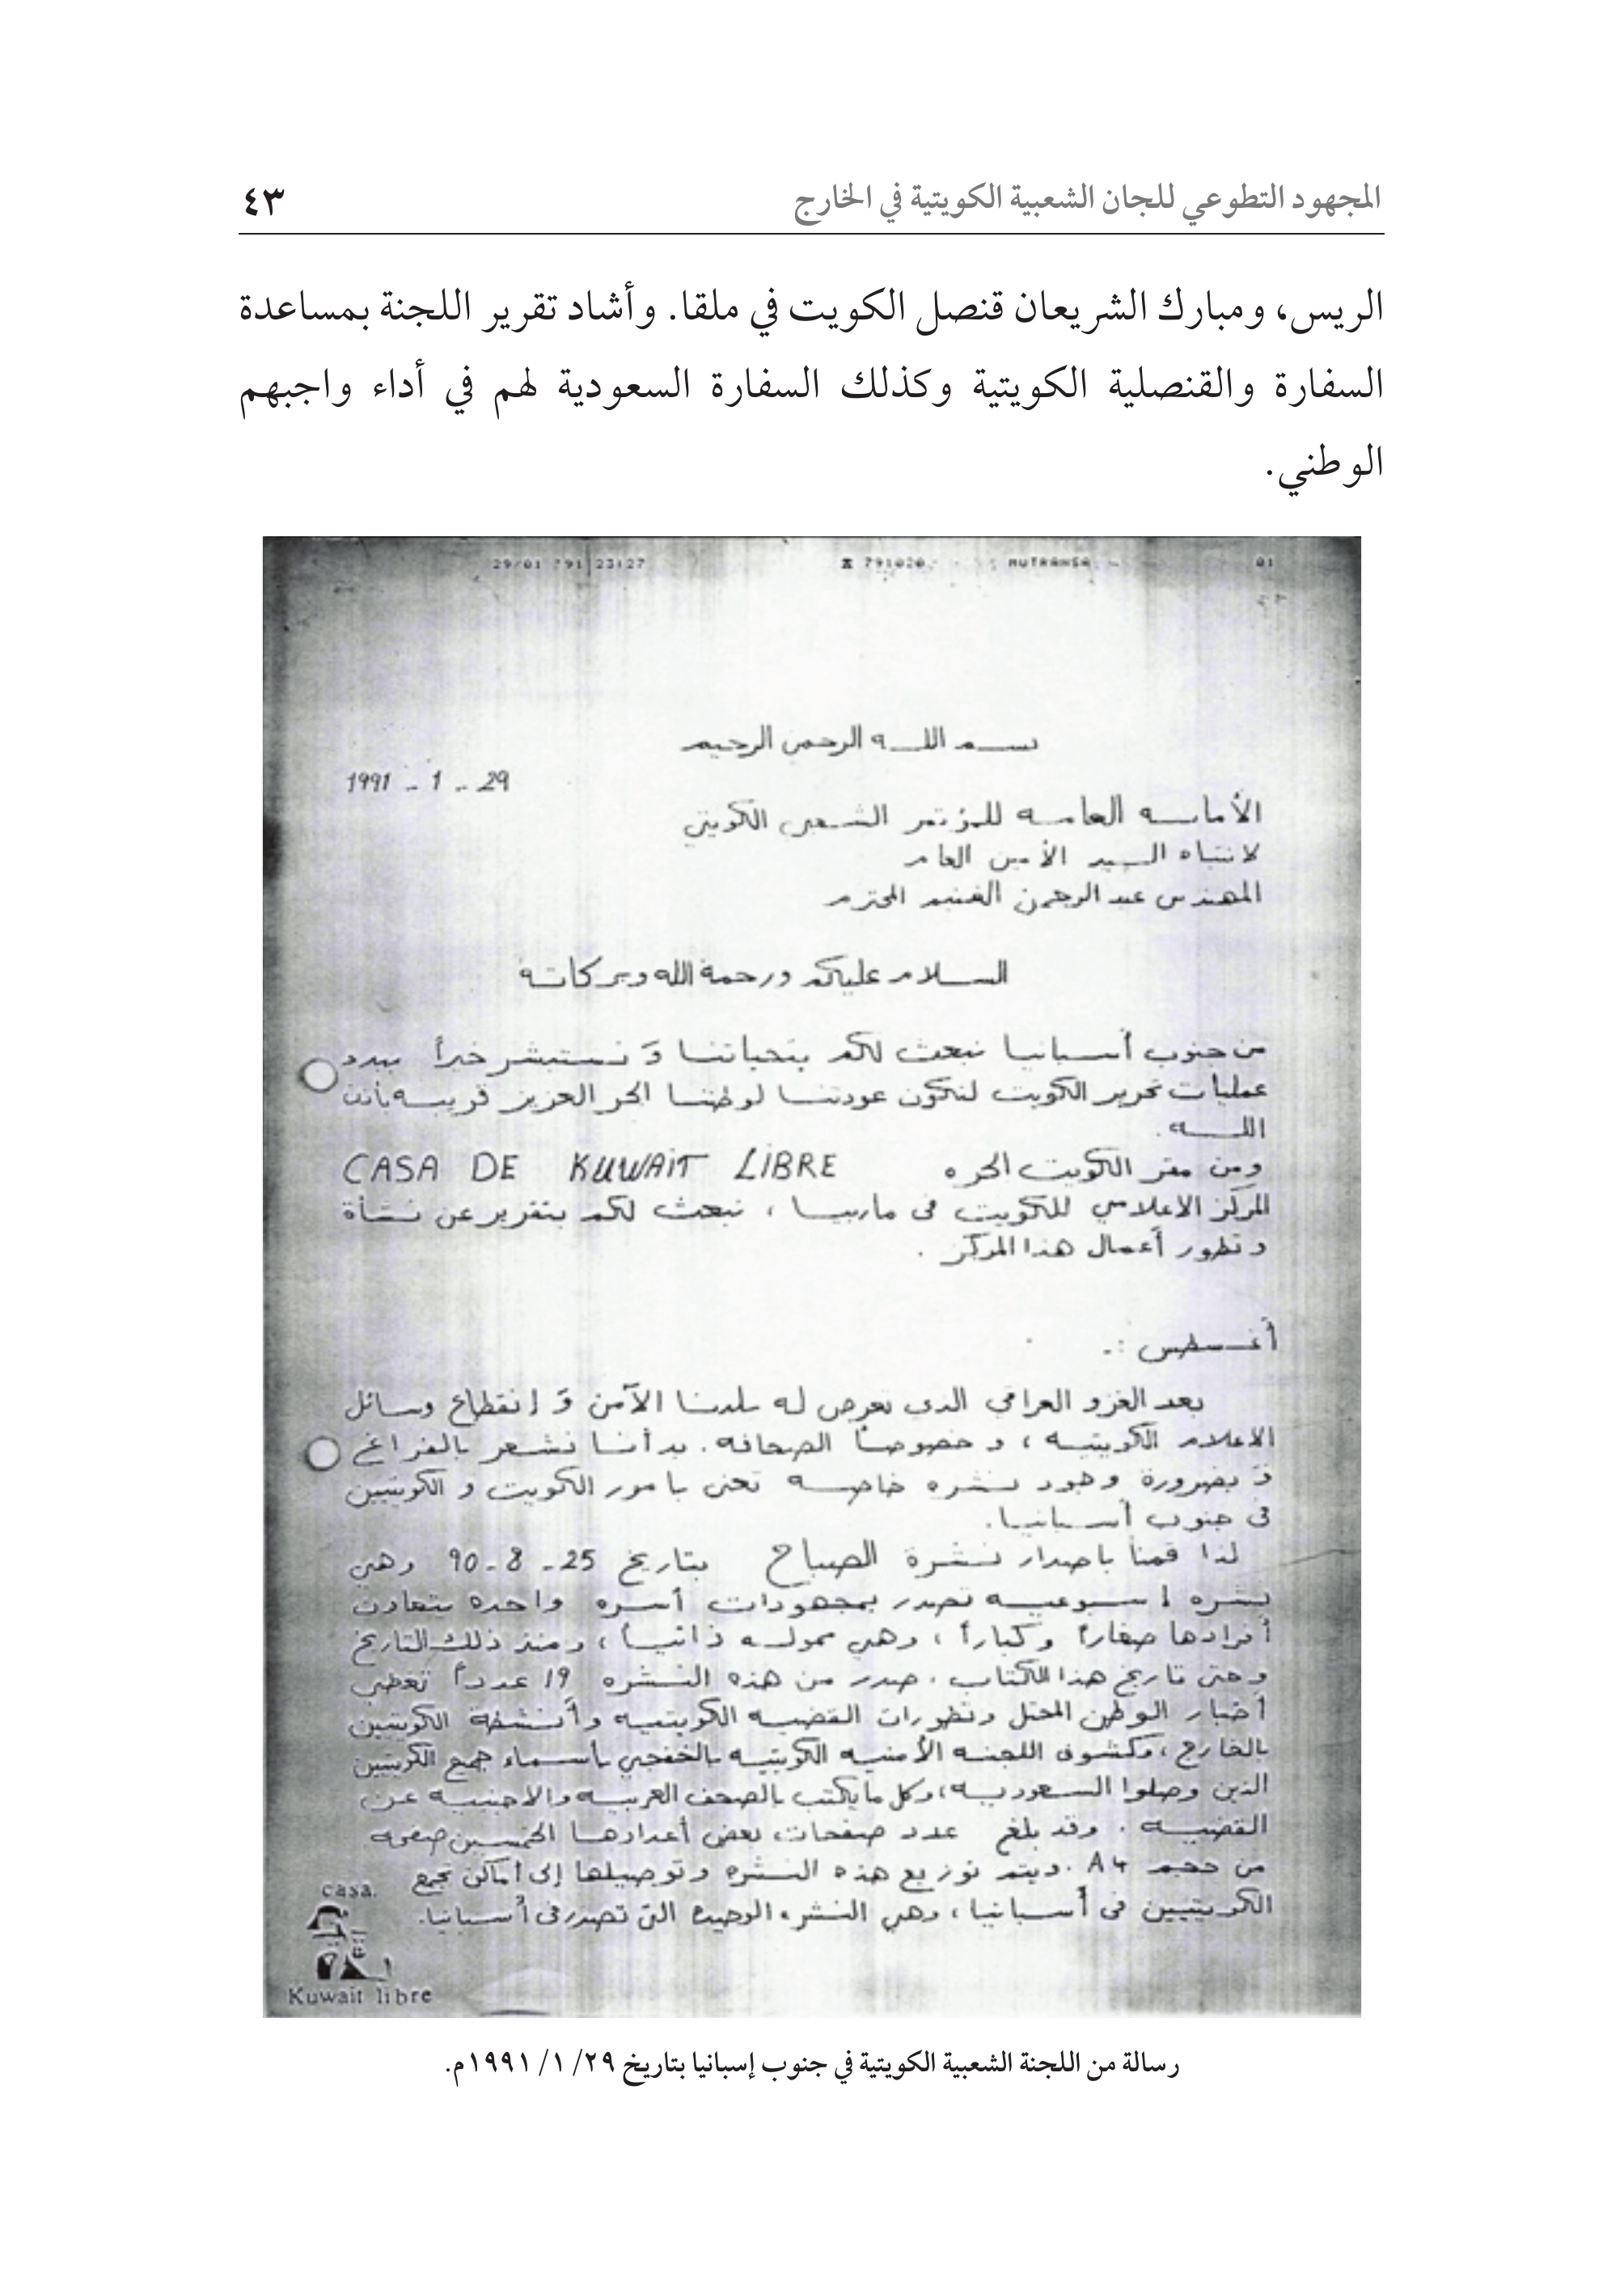 المجهود التطوعي للجان الشعبية الكويتية في الخارج
٤٣
الريس، ومبارك الشريعان قنصل الكويت في ملقا. وأشاد تقرير اللجنة بمساعدة
السفارة والقنصلية الكويتية وكذلك السفارة السعودية لهم في أداء واجبهم
الوطني.
29/01 '91 23:27 791020 MUTRANSA 01
بسم اللـه الرحمن الرحيم
29 - 1 - 1991
الأمانه العامه للمؤتمر الشعبي الكويتي
لانتباه السيد الأمين العام
المهندس عبد الرحمن الغنيم المحترم
السلام عليكم ورحمة الله وبركاته
من جنوب أسبانيا نبعث لكم بتحياتنا و نستبشر خيراً ببدء
عمليات تحرير الكويت لتكون عودتنا لوطننا الحر العزيز قريبه بأذن
اللـه.
ومن مقر الكويت الحره CASA DE KUWAIT LIBRE
المركز الاعلامي للكويت فى ماربيا ، نبعث لكم بتقرير عن نشأة
و تطور أعمال هذا المركز .
أغسطس :-
بعد الغزو العراقي الذى تعرض له بلدنا الآمن و إنقطاع وسائل
الاعلام الكويتيه ، و خصوصاً الصحافه . بدأنا نشعر بالفراغ
و بضرورة وجود نشره خاصه تعنى بامور الكويت و الكويتيين
فى جنوب أسبانيا.
لذا قمنا باصدار نشرة الصباح بتاريخ 25 - 8 - 90 وهي
نشره اسبوعيه تصدر بمجهودات أسره واحده يتعاون
أفرادها صغاراً وكباراً ، وهي ممولـه ذاتياً ، ومنذ ذلك التاريخ
وحتى تاريخ هذا الكتاب . صدر من هذه النشره 19 عدداً تغطي
أخبار الوطن المحتل وتطورات القضيه الكويتيه وأنشطة الكويتيين
بالخارج ، وكشوف اللجنه الأمنيه الكويتيه بالخفجي بأسماء جميع الكويتيين
الذين وصلوا السعوديـه ، وكل ما يكتب بالصحف العربيـه والاجنبيـه عن
القضيـه . وقد بلغ عدد صفحات بعض أعدادها الخمسين صفحه
من حجم A4 . ويتم توزيع هذه النشره وتوصيلها إلى أماكن تجمع
الكويتيين فى أسبانيا ، وهي النشره الوحيدة التى تصدر فى أسبانيا.
casa.
Kuwait libre
رسالة من اللجنة الشعبية الكويتية في جنوب إسبانيا بتاريخ ٢٩/ ١/ ١٩٩١م.